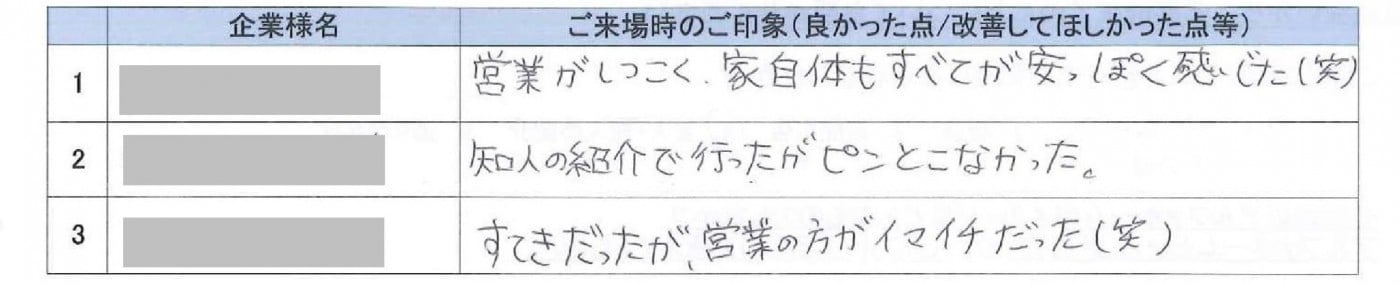 企業様名 ご来場時のご印象(良かった点/改善してほしかった点等)
1 営業がしつこく、家自体もすべてが安っぽく感じた(笑)
2 知人の紹介で行ったがピンとこなかった。
3 すてきだったが、営業の方がイマイチだった(笑)